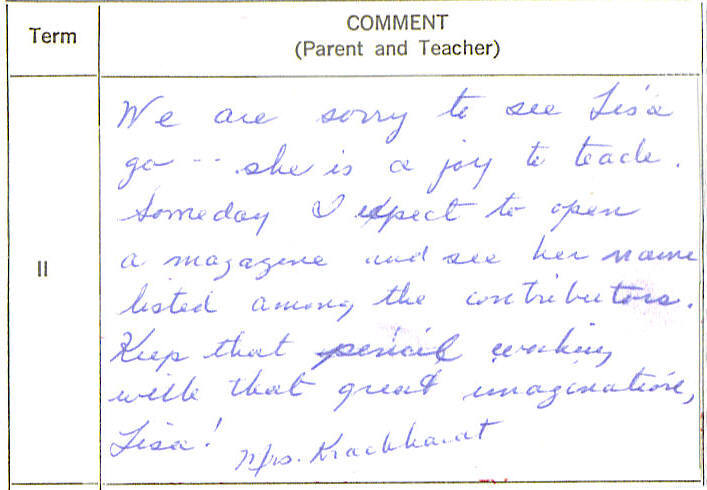 Term
COMMENT
(Parent and Teacher)
II
We are sorry to see Lisa
go -- she is a joy to teach.
Someday I expect to open
a magazine and see her name
listed among the contributors.
Keep that pencil working
with that great imagination,
Lisa!
Mrs. Krackhardt